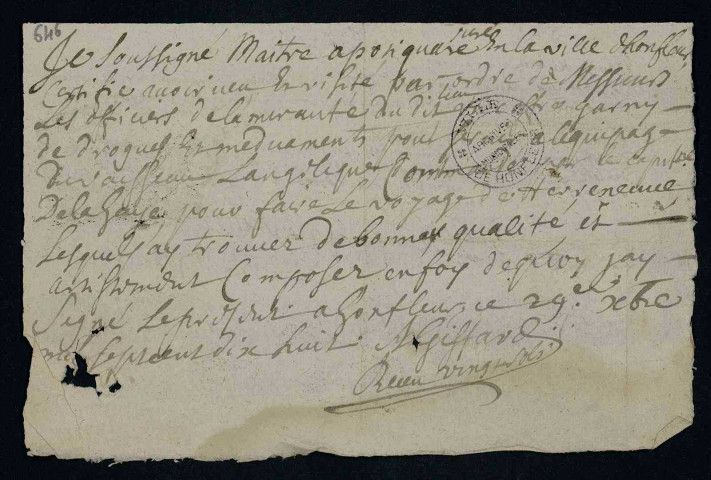 646
Je Soussigné Maitre apotiquare juré En la ville dhonfleur
Certifie avoir veu Et visité par ordre de Messieurs
Les officiers de lamirauté du dit lieu Coffre garny
de drogues Et meduaments pour lequipage
du vaisseau Langelique Commandé par le cap
Dela pour faire Le voyage de terreneuve
Lesquels ay trouver de bonnes qualité et
artistement Composer en foy dequoy jay
Signé Le present a honfleur ce 29e xbre
mil sept cent dix huit N Giffard
Receu vingt sols